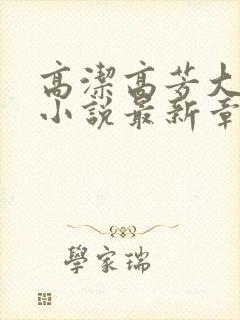 高潔高芳大
小說最新章
學家瑞